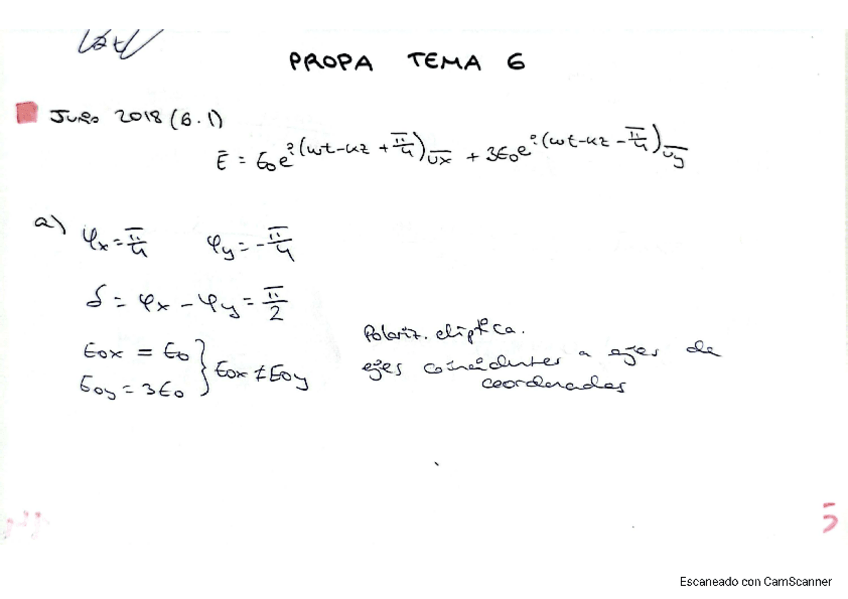 PROPA TEMA 6
Junio 2018 (6.1)
Ē = E₀e^{j(ωt-kz+π/4)} ūx + 3E₀e^{j(ωt-kz-π/4)} ūy
a) φx = π/4 φy = -π/4
δ = φx - φy = π/2
E₀x = E₀
E₀y = 3E₀ } E₀x ≠ E₀y
Polariz. elíptica.
ejes coincidentes a ejes de
coordenadas
5
Escaneado con CamScanner